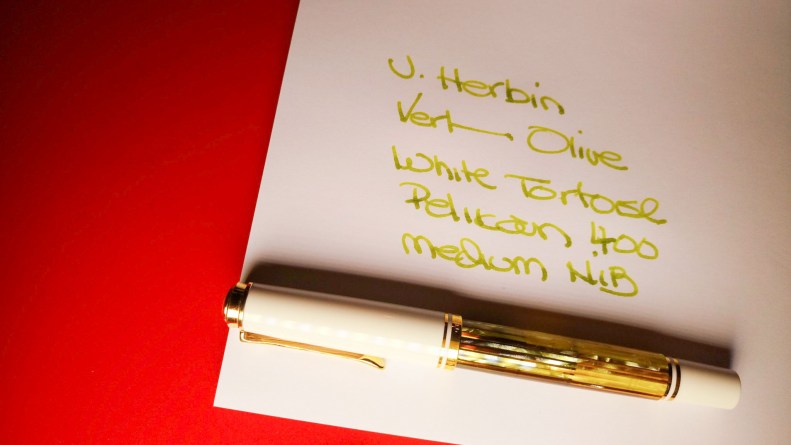 J. Herbin
Vert Olive
White Tortoise
Pelikan 400
medium NIB